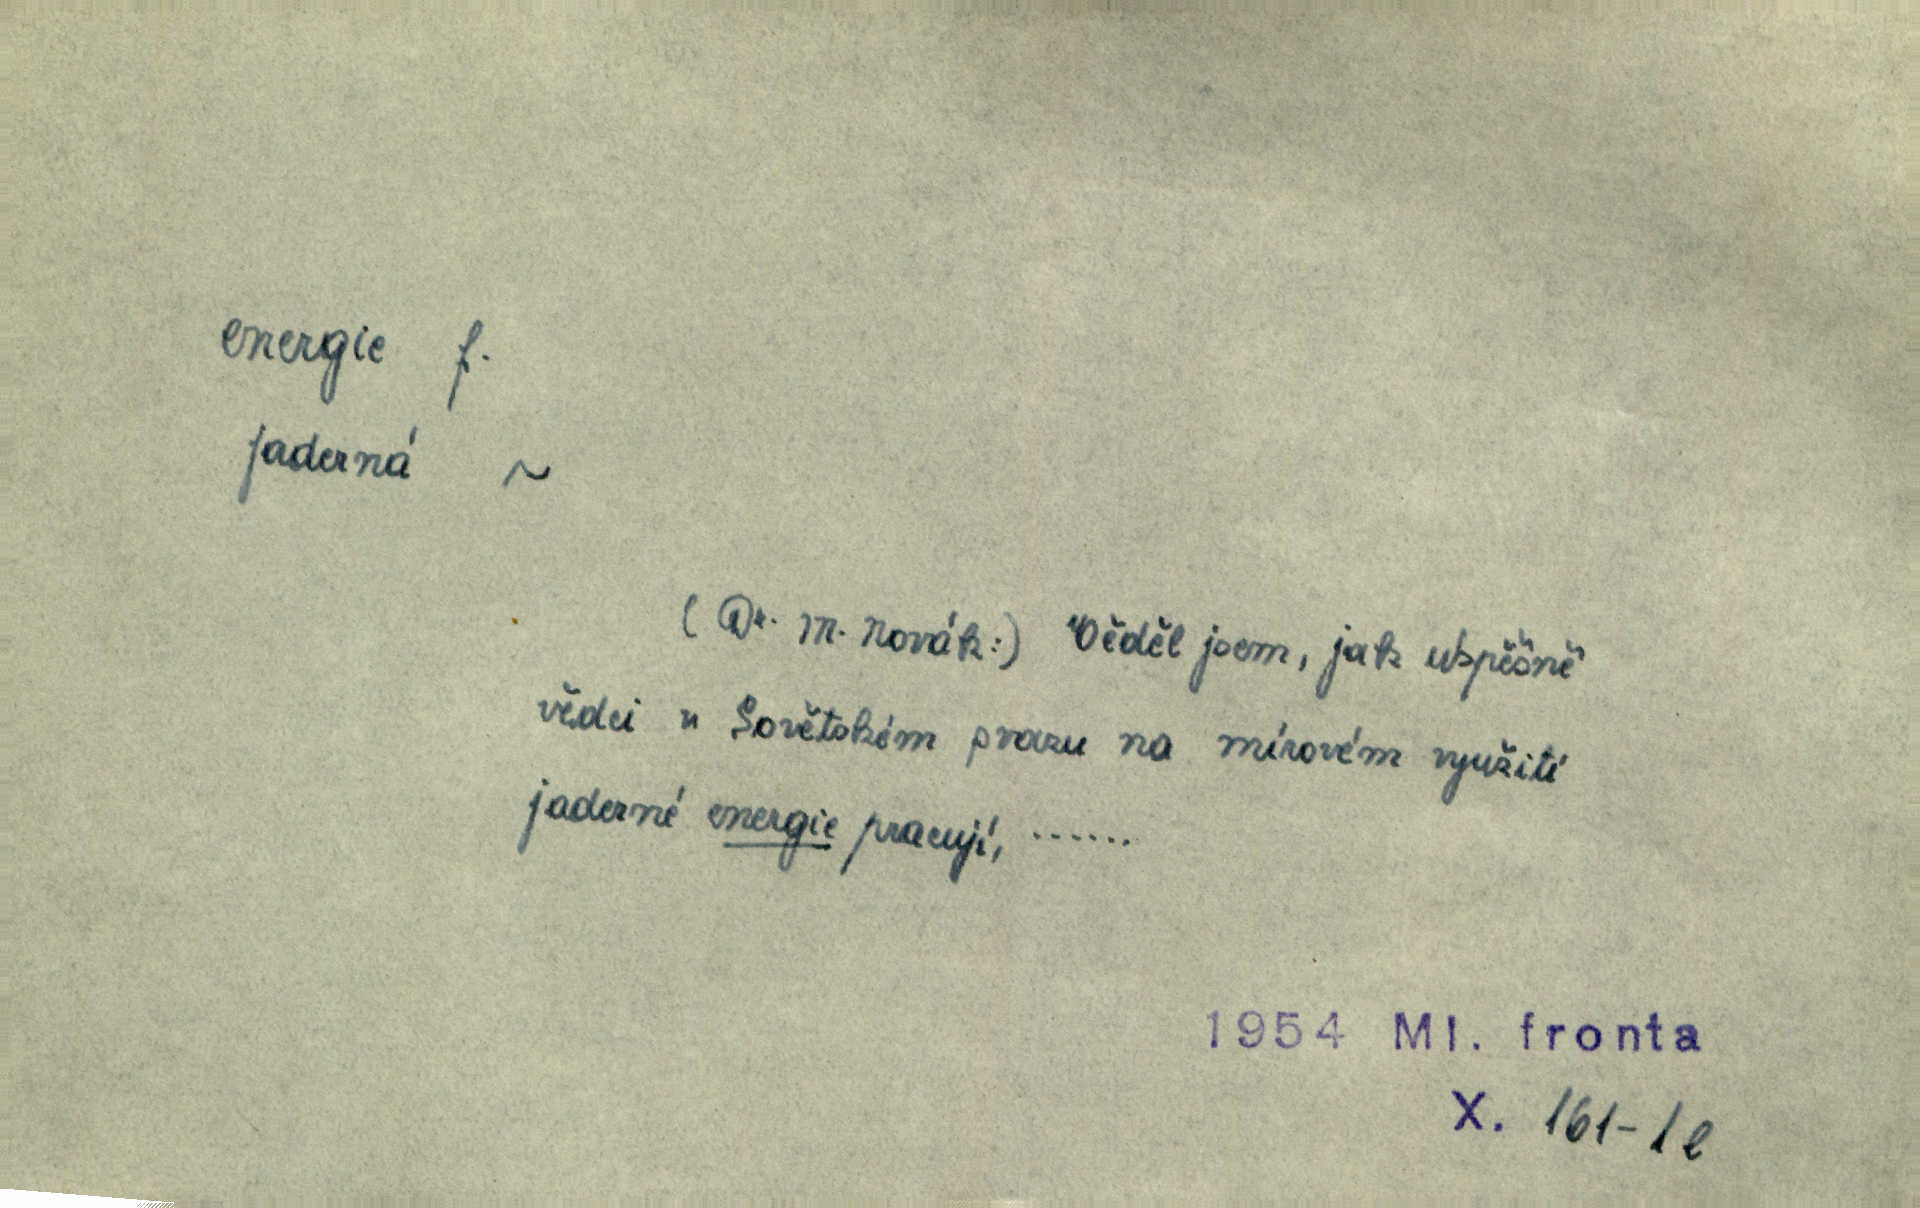 energie f.
jaderná ~
(Dr. M. Novák:) Věděl jsem, jak úspěšně
vědci v Sovětském svazu na mírovém využití
jaderné energie pracují, ......
1954 Ml. fronta
X. 161-1e